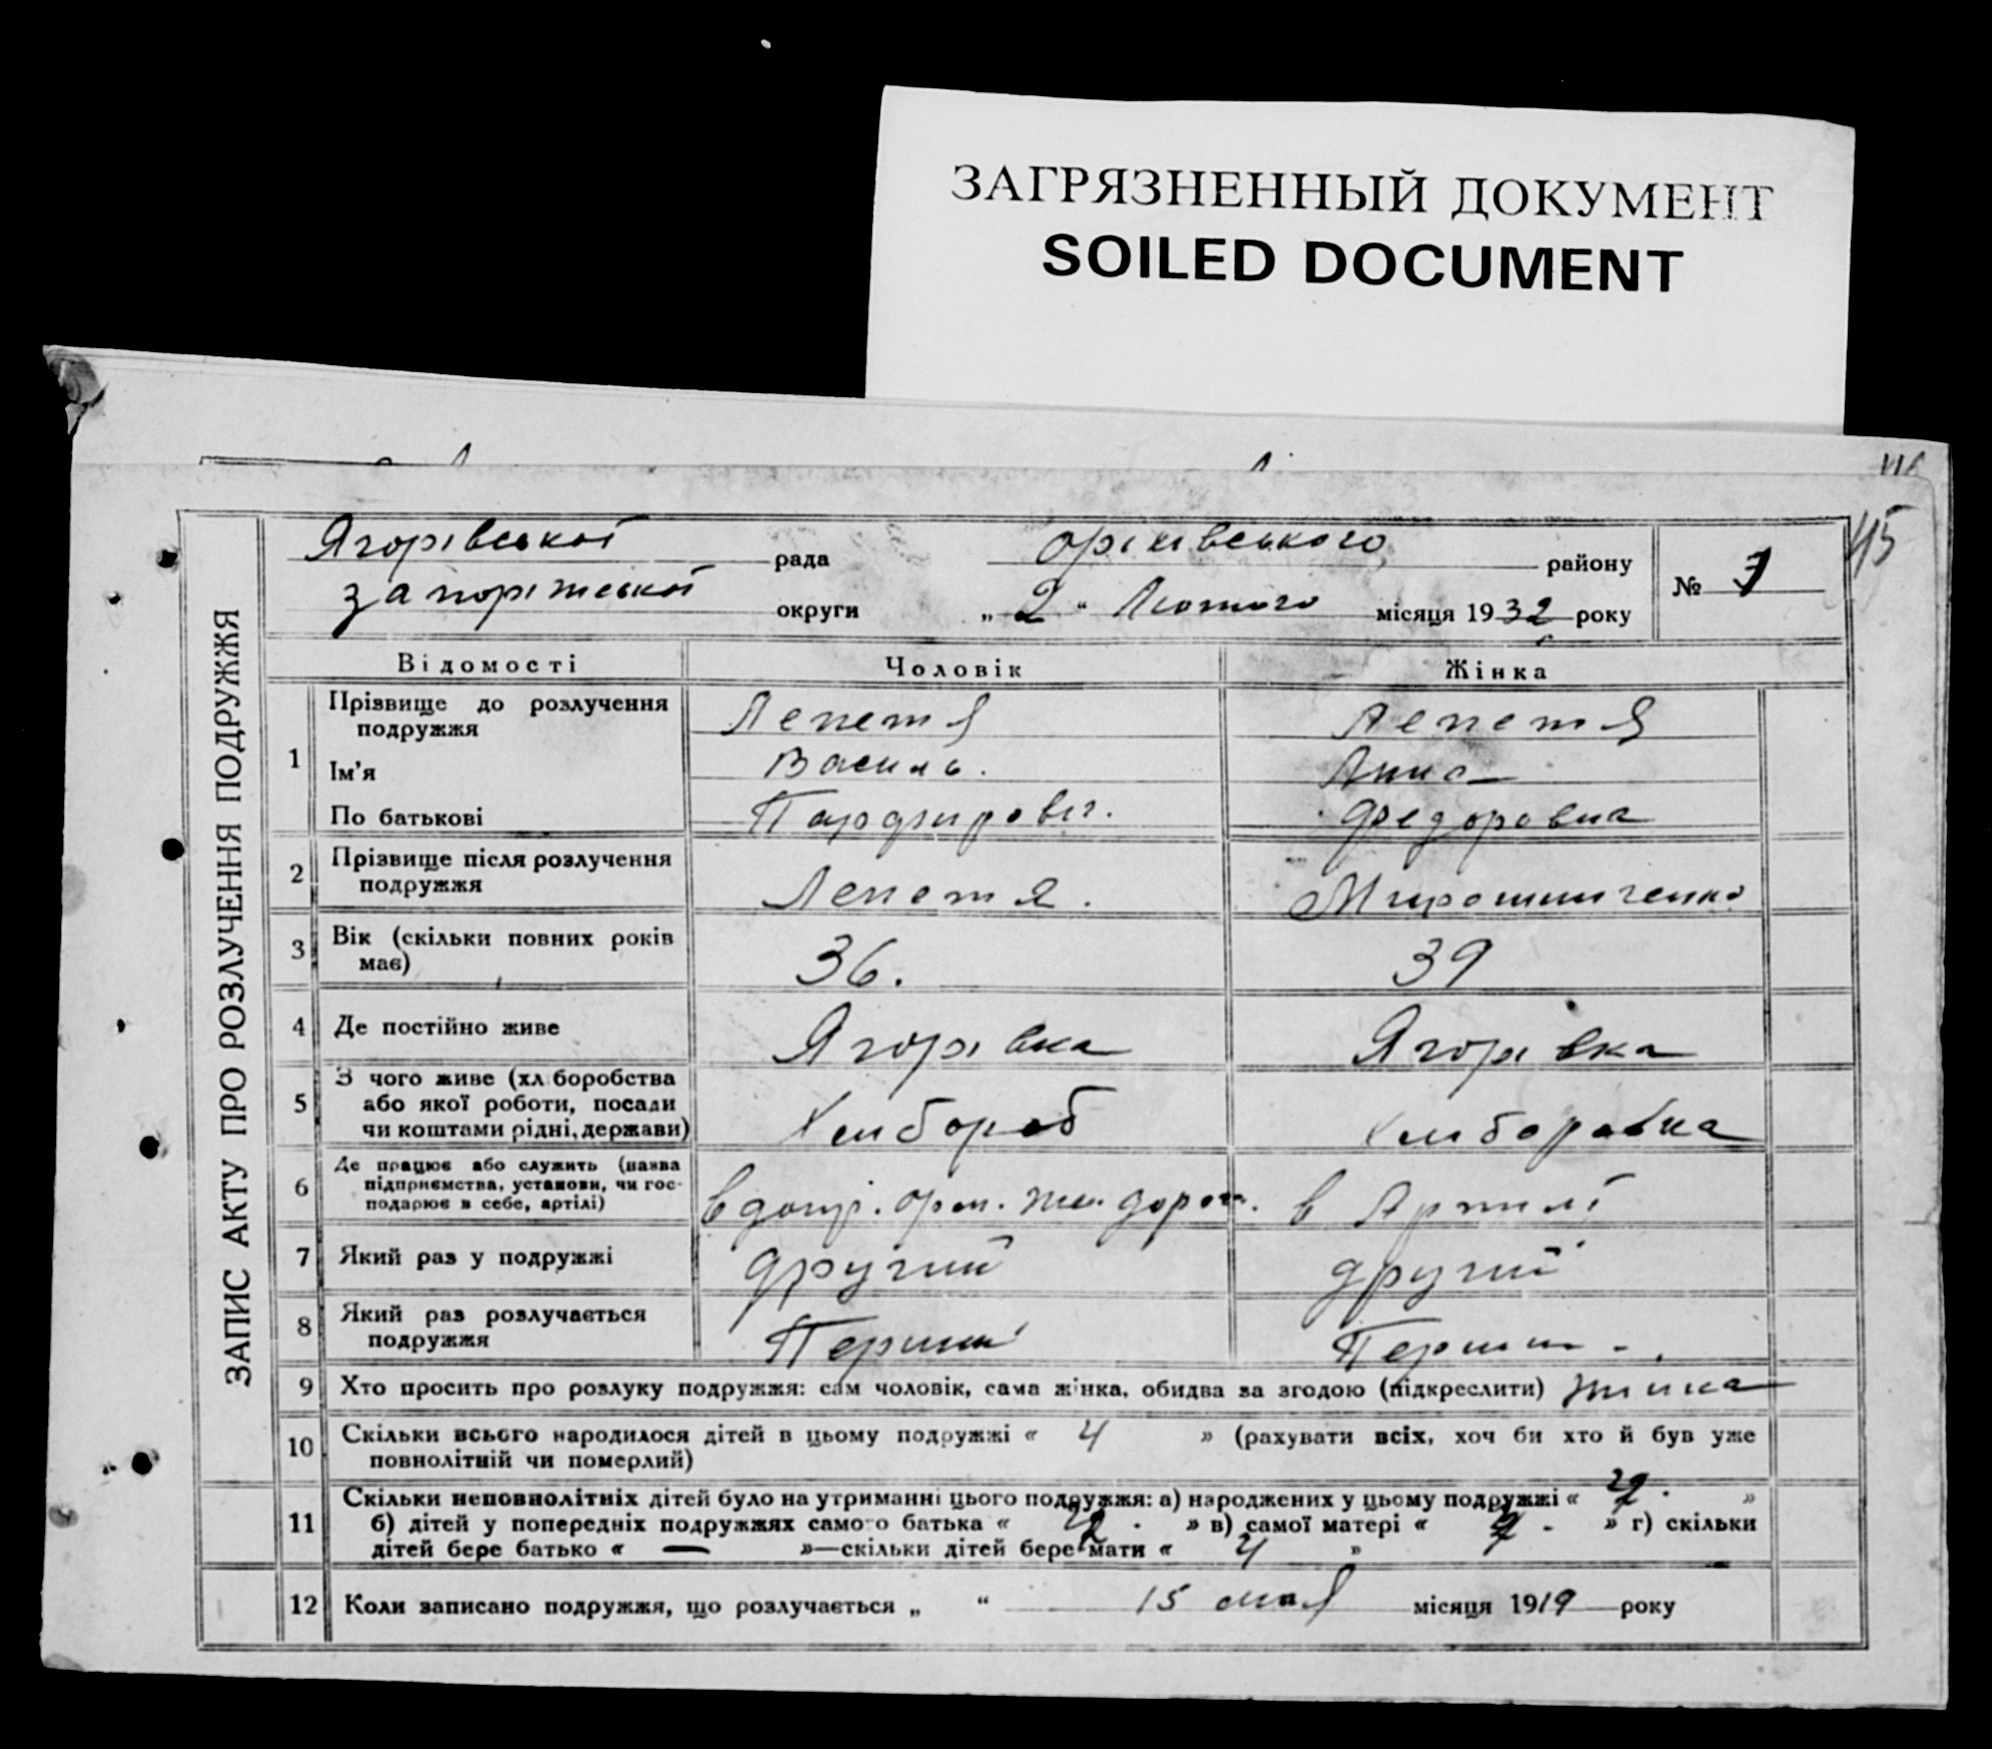 ЗАГРЯЗНЕННЫЙ ДОКУМЕНТ
SOILED DOCUMENT
45
ЗАПИС АКТУ ПРО РОЗЛУЧЕННЯ ПОДРУЖЖЯ
Ягорівської рада Оріхівського району
Запоріжської округи „ 2 “ Лютого місяця 1932 року
№
Відомості Чоловік Жінка
1 Прізвище до розлучення Лепетя Лепетя
подружжя
Ім'я Василь. Анна
По батькові Парфирович. Федоровна
2 Прізвище після розлучення
подружжя Лепетя. Мирошниченко
3 Вік (скільки повних років
має) 36. 39
4 Де постійно живе Ягорівка Ягорівка
5 З чого живе (хліборобства
або якої роботи, посади Хлибороб Хлиборобка
чи коштами рідні, держави)
6 Де працює або служить (назва
підприємства, установи, чи гос-
подарює в себе, артілі) в Артилі
7 Який раз у подружжі другий другий
8 Який раз розлучається
подружжя Перший Перший
9 Хто просить про розлуку подружжя: сам чоловік, сама жінка, обидва за згодою (підкреслити) жинка
10 Скільки всього народилося дітей в цьому подружжі « 4 » (рахувати всіх, хоч би хто й був уже
повнолітній чи померлий)
11 Скільки неповнолітніх дітей було на утриманні цього подружжя: а) народжених у цьому подружжі « »
б) дітей у попередніх подружжях самого батька « » в) самої матері « » г) скільки
дітей бере батько « — »—скільки дітей бере мати « 4 »
12 Коли записано подружжя, що розлучається „ “ 15 мая місяця 1919 року